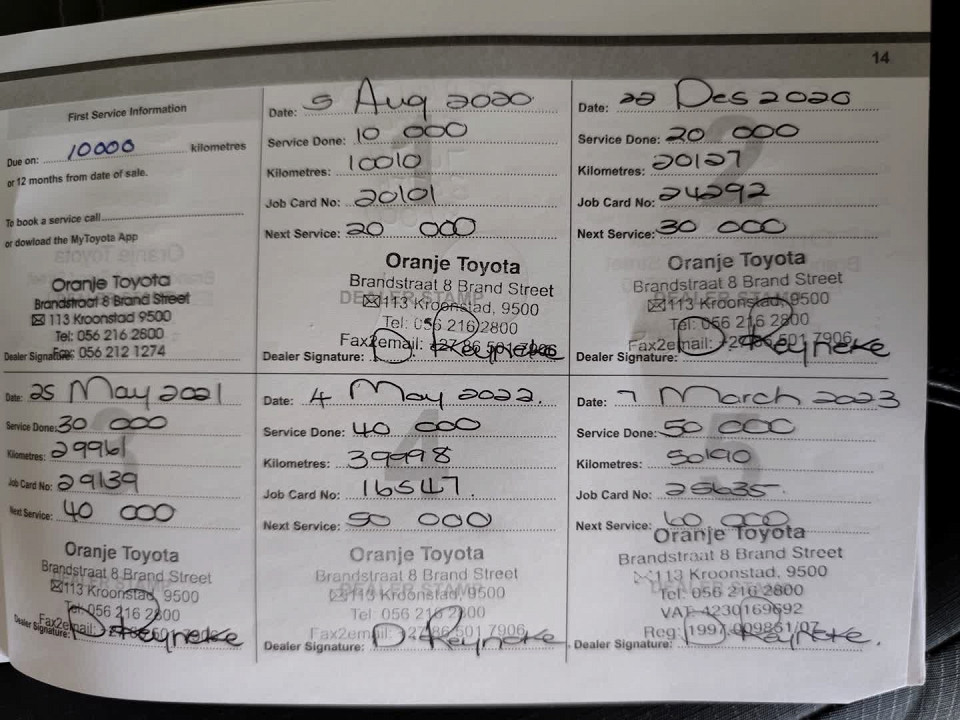 14
First Service Information
Due on: 10000 kilometres
or 12 months from date of sale.
To book a service call
or dowload the MyToyota App
Oranje Toyota
Brandstraat 8 Brand Street
113 Kroonstad 9500
Tel: 056 216 2800
Fax: 056 212 1274
Dealer Signature:
Date: 5 Aug 2020
Service Done: 10 000
Kilometres: 10010
Job Card No: 20101
Next Service: 20 000
Oranje Toyota
Brandstraat 8 Brand Street
DEALER STAMP
113 Kroonstad, 9500
Tel: 056 216 2800
Fax2email: +27 86 501 7906
Dealer Signature: D. Reyneke
Date: 22 Des 2020
Service Done: 20 000
Kilometres: 20127
Job Card No: 24292
Next Service: 30 000
Oranje Toyota
Brandstraat 8 Brand Street
113 Kroonstad, 9500
Tel: 056 216 2800
Fax2email: +27 86 501 7906
Dealer Signature: D Reyneke
Date: 25 May 2021
Service Done: 30 000
Kilometres: 29961
Job Card No: 29139
Next Service: 40 000
Oranje Toyota
Brandstraat 8 Brand Street
113 Kroonstad, 9500
Tel: 056 216 2800
Fax2email:
Dealer Signature: D Reyneke
Date: 4 May 2022.
Service Done: 40 000
Kilometres: 39998
Job Card No: 16547.
Next Service: 50 000
Oranje Toyota
Brandstraat 8 Brand Street
DEALER STAMP
113 Kroonstad, 9500
Tel: 056 216 2800
Fax2email: +27 86 501 7906
Dealer Signature: D. Reyneke
Date: 7 March 2023
Service Done: 50 000
Kilometres: 50190
Job Card No: 25635.
Next Service: 60 000
Oranje Toyota
Brandstraat 8 Brand Street
113 Kroonstad, 9500
Tel: 056 216 2800
VAT 4230169692
Reg: 1997/009861/07
Dealer Signature: D Reyneke.